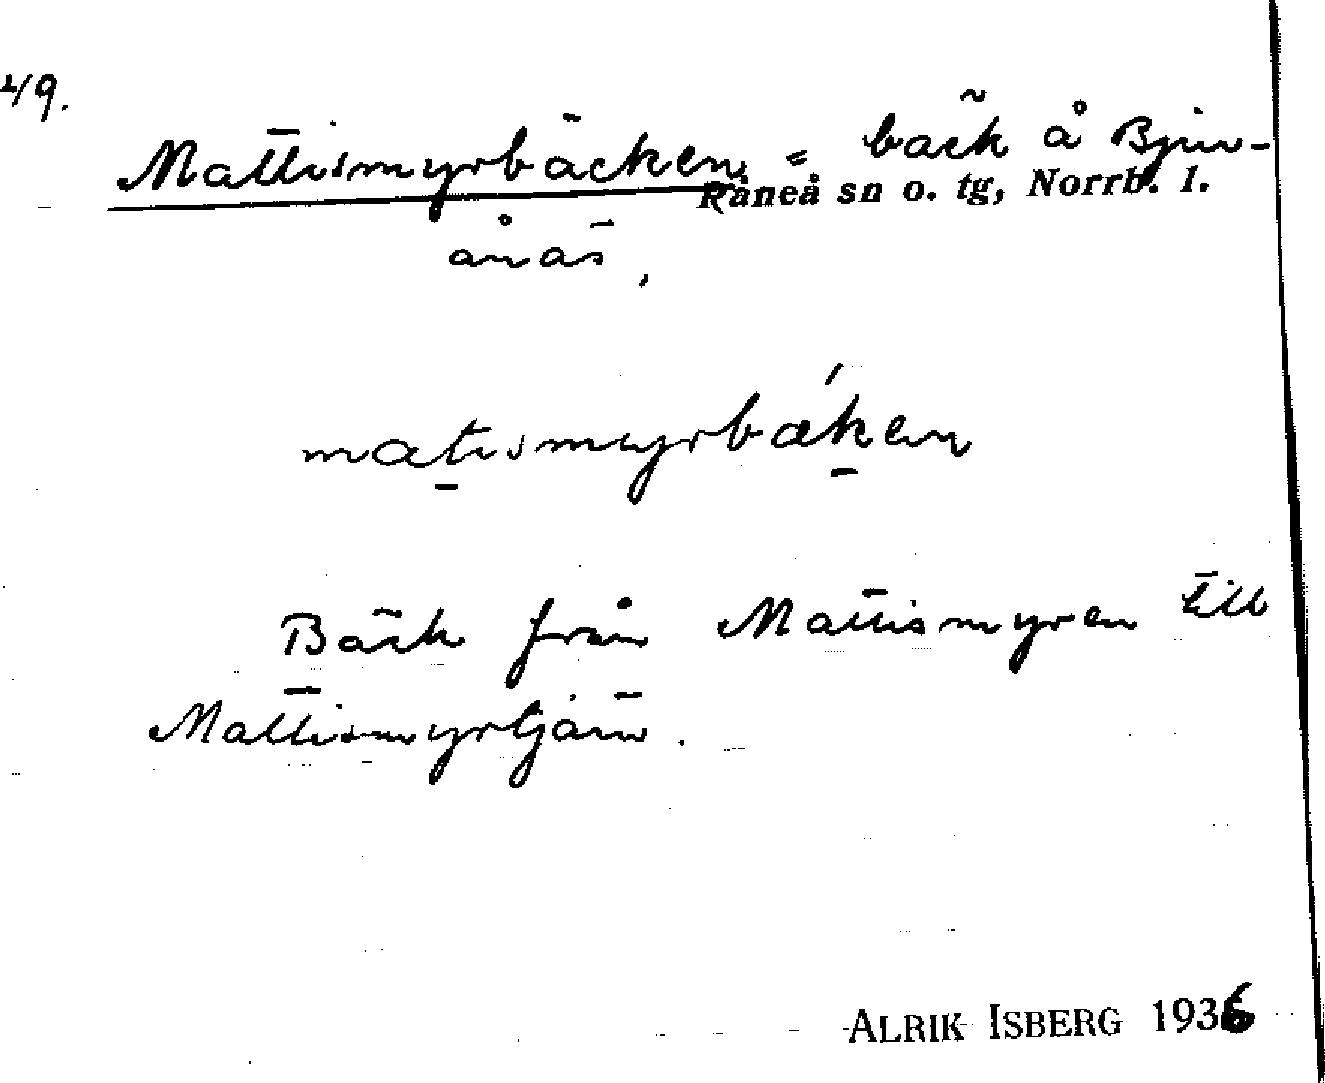 2/9.
Mattismyrbäcken, = bäck å Bjur-
Råneå sn o. tg, Norrb. l.
ånäs,
matismyrbæken
Bäck från Mattismyren till
Mattismyrtjärn.
ALRIK ISBERG 1936